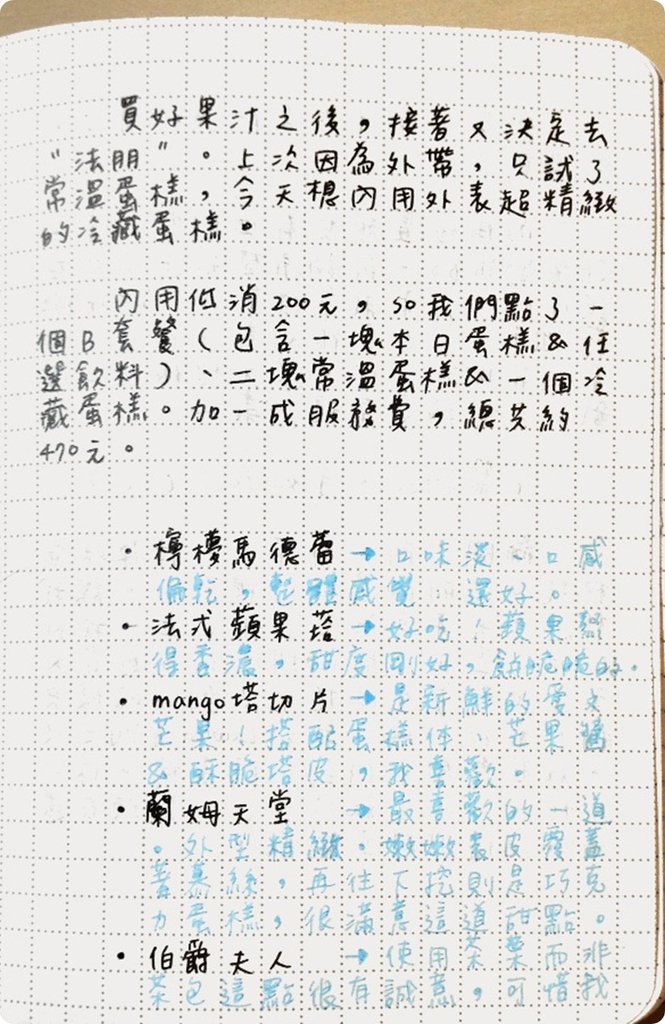 買好果汁之後，接著又決定去
"法朋"。上次因為外帶，只試了
常溫蛋糕，今天想內用外表超精緻
的冷藏蛋糕。
內用低消200元，so我們點了一
個B套餐（包含一塊本日蛋糕&任
選飲料）、二塊常溫蛋糕&一個冷
藏蛋糕。加一成服務費，總共約
470元。
• 檸檬馬德蕾→口味淡、口感
偏乾，整體感覺還好。
• 法式蘋果塔→好吃！蘋果熬
得香濃，甜度剛好，餅脆脆的。
• mango塔切片→是新鮮的愛文
芒果！搭配蛋糕体、芒果醬
&酥脆塔皮，我喜歡。
• 蘭姆天堂→最喜歡的一道
。外型精緻，嫩嫩表皮覆蓋
著慕絲，再往下挖則是巧克
力蛋糕，很滿意這道甜點。
• 伯爵夫人→使用茶葉而非
茶包這點很有誠意，可惜我